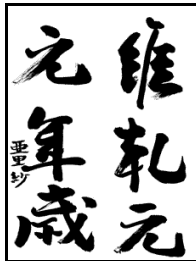 維乾元
元年歳
亜里紗